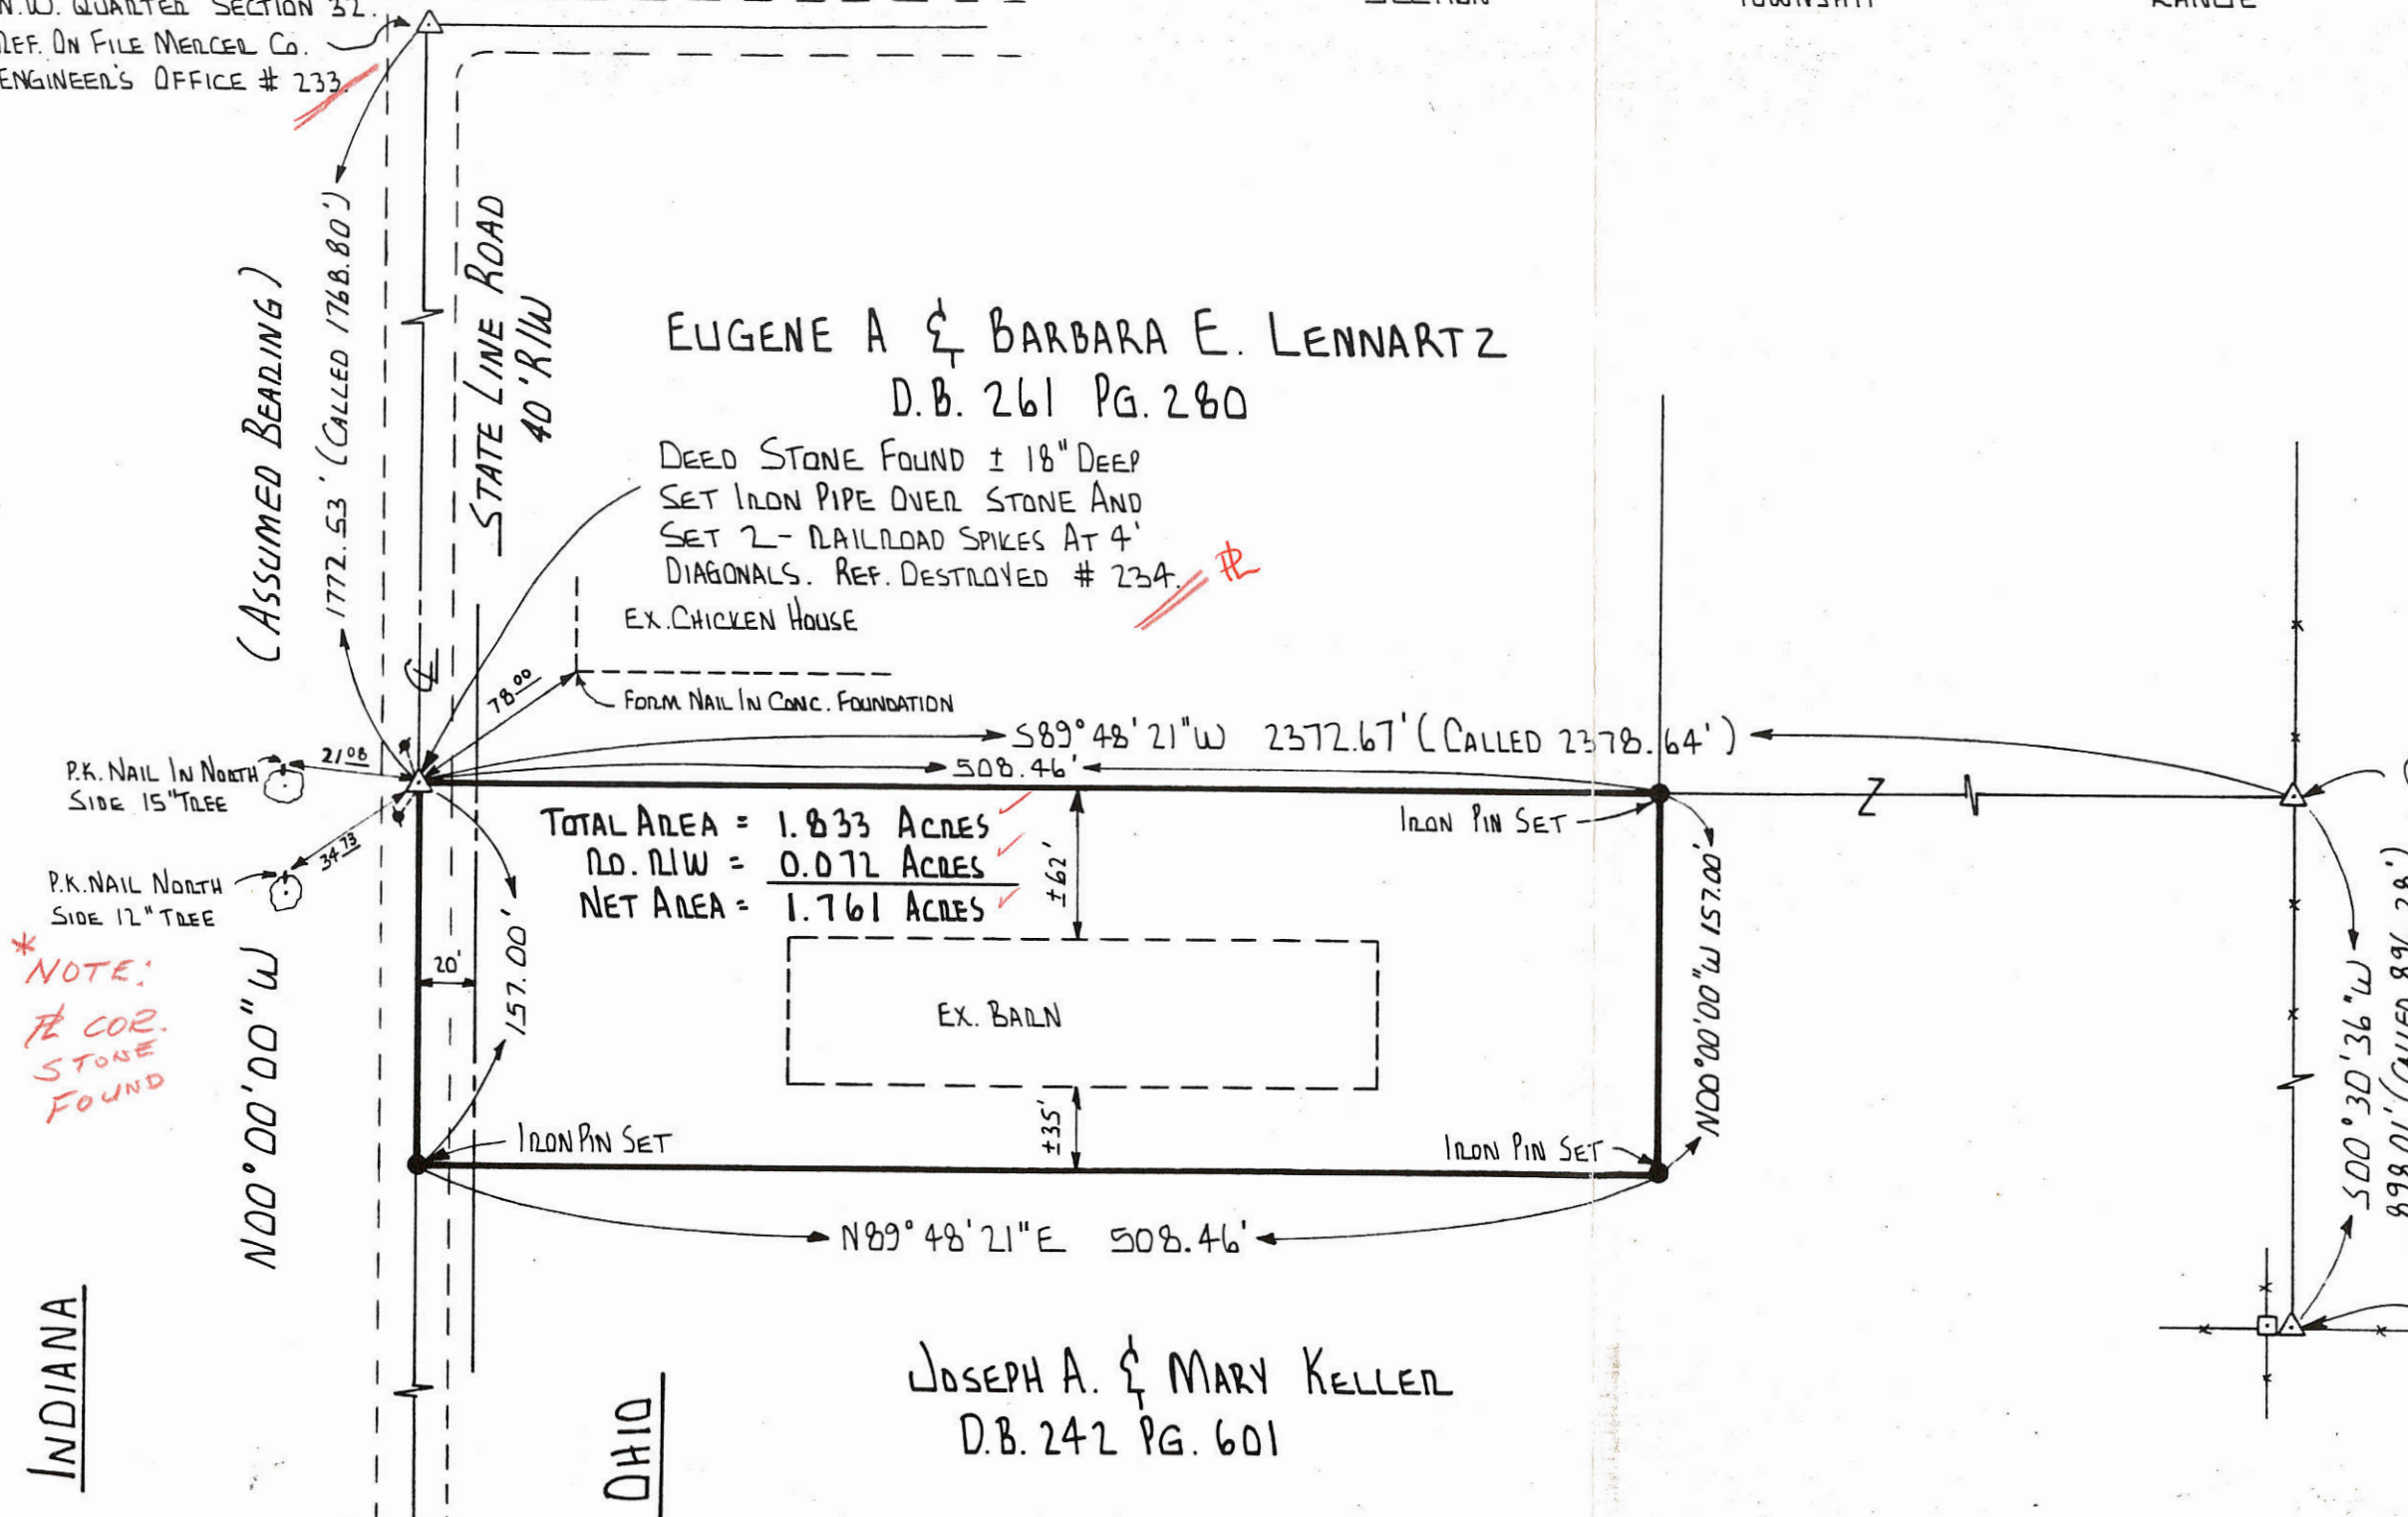 N.W. QUARTER SECTION 32.
REF. ON FILE MERCER CO.
ENGINEER'S OFFICE # 233.
SECTION
TOWNSHIP
RANGE
(ASSUMED BEARING)
1772.53' (CALLED 1768.80')
STATE LINE ROAD
40' R/W
EUGENE A & BARBARA E. LENNARTZ
D.B. 261 PG. 280
DEED STONE FOUND ± 18" DEEP
SET IRON PIPE OVER STONE AND
SET 2- RAILROAD SPIKES AT 4'
DIAGONALS. REF. DESTROYED # 234.
PL
EX. CHICKEN HOUSE
78.00
FORM NAIL IN CONC. FOUNDATION
CL
S89°48'21"W 2372.67' (CALLED 2378.64')
508.46'
P.K. NAIL IN NORTH
SIDE 15" TREE
21.08
P.K. NAIL NORTH
SIDE 12" TREE
34.73
TOTAL AREA = 1.833 ACRES
RD. R/W = 0.072 ACRES
NET AREA = 1.761 ACRES
±62'
IRON PIN SET
Z
N00°00'00"W 157.00'
* NOTE:
PL COR.
STONE
FOUND
N00°00'00"W
20'
157.00'
EX. BARN
±35'
IRON PIN SET
IRON PIN SET
S00°30'36"W
898.01' (CALLED 896.28')
N89°48'21"E 508.46'
INDIANA
OHIO
JOSEPH A. & MARY KELLER
D.B. 242 PG. 601